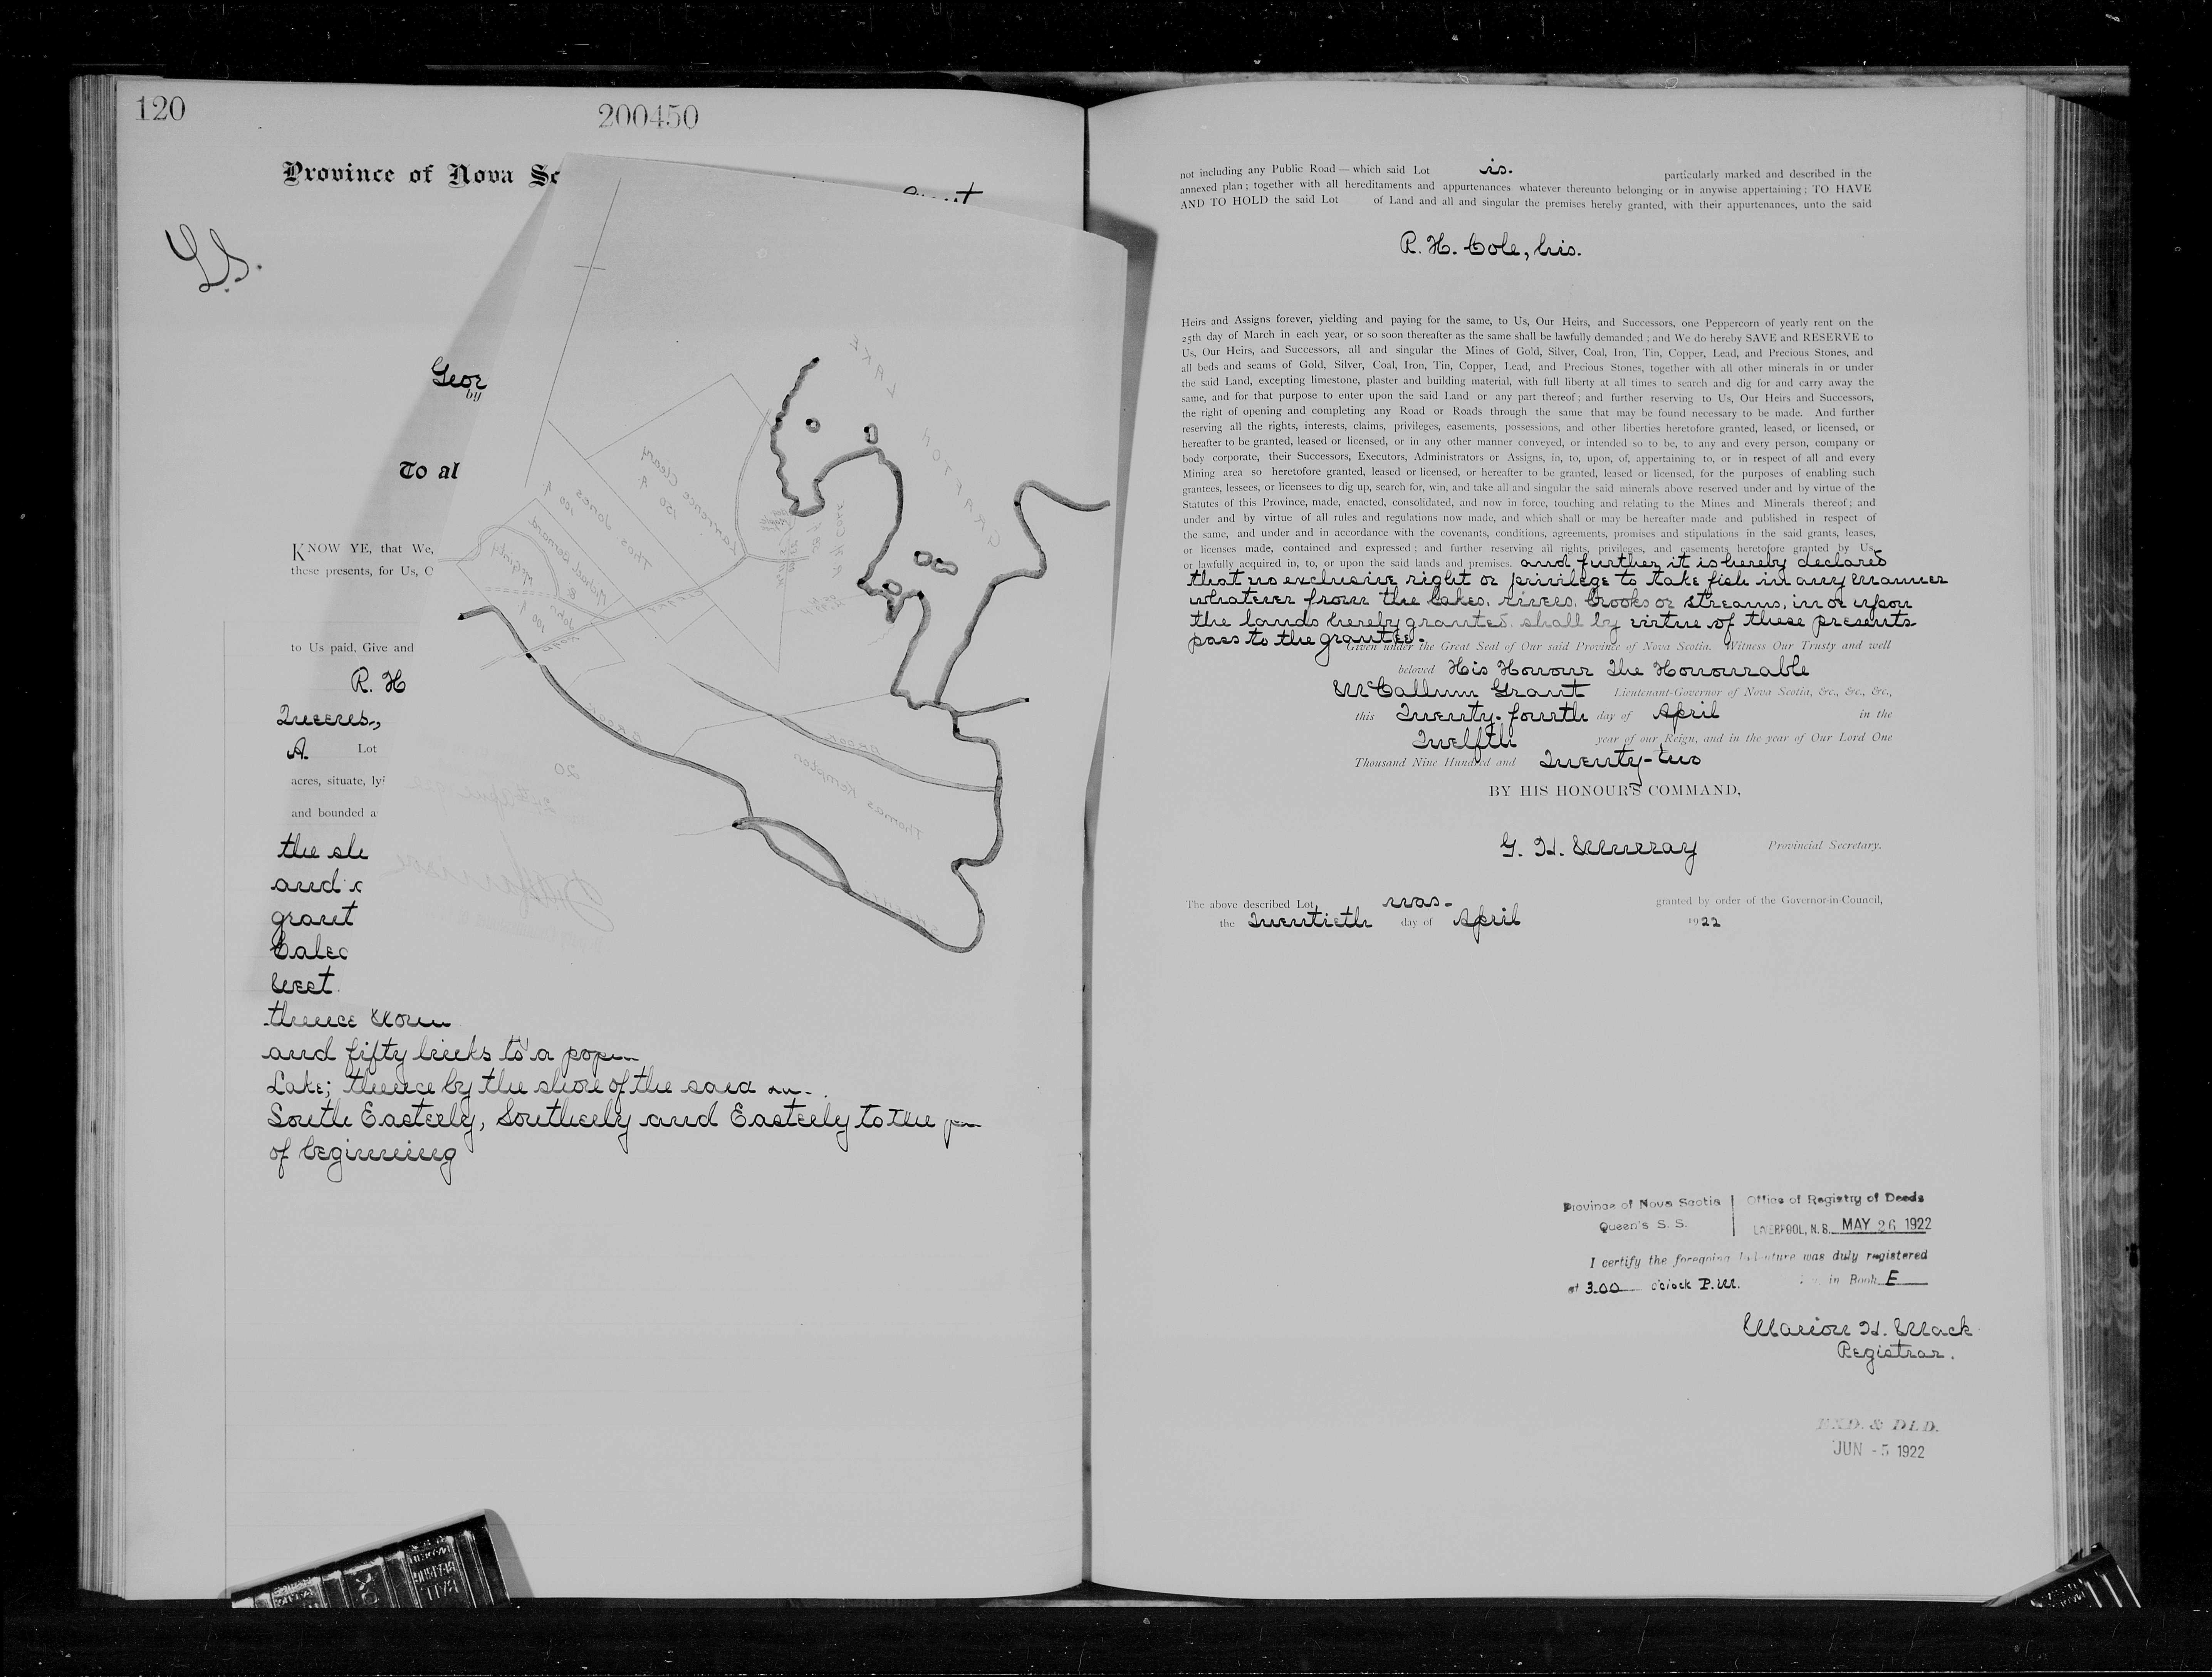 120
200450
Province of Nova Sc
L.S.
Geor
by
To al
KNOW YE, that We,
these presents, for Us, O
to Us paid, Give and
R. H
Queens,
A. Lot
acres, situate, lyi
and bounded a
the sh
and
grant
Caled
West
thence Nor
and fifty links to a
Lake; thence by the shore of the said
South Easterly, Southerly and Easterly to the
of beginning
LAKE
GRAFTON
Lawrence Cleary
150 A.
Thos Jones
100 A.
Michael Bernard
&
John
100 A
R. H. COLE
BROOK
BROOK
Thomas Kempton
20
not including any Public Road — which said Lot is. particularly marked and described in the
annexed plan; together with all hereditaments and appurtenances whatever thereunto belonging or in anywise appertaining; TO HAVE
AND TO HOLD the said Lot of Land and all and singular the premises hereby granted, with their appurtenances, unto the said
R. H. Cole, his.
Heirs and Assigns forever, yielding and paying for the same, to Us, Our Heirs, and Successors, one Peppercorn of yearly rent on the
25th day of March in each year, or so soon thereafter as the same shall be lawfully demanded; and We do hereby SAVE and RESERVE to
Us, Our Heirs, and Successors, all and singular the Mines of Gold, Silver, Coal, Iron, Tin, Copper, Lead, and Precious Stones, and
all beds and seams of Gold, Silver, Coal, Iron, Tin, Copper, Lead, and Precious Stones, together with all other minerals in or under
the said Land, excepting limestone, plaster and building material, with full liberty at all times to search and dig for and carry away the
same, and for that purpose to enter upon the said Land or any part thereof; and further reserving to Us, Our Heirs and Successors,
the right of opening and completing any Road or Roads through the same that may be found necessary to be made. And further
reserving all the rights, interests, claims, privileges, easements, possessions, and other liberties heretofore granted, leased, or licensed, or
hereafter to be granted, leased or licensed, or in any other manner conveyed, or intended so to be, to any and every person, company or
body corporate, their Successors, Executors, Administrators or Assigns, in, to, upon, of, appertaining to, or in respect of all and every
Mining area so heretofore granted, leased or licensed, or hereafter to be granted, leased or licensed, for the purposes of enabling such
grantees, lessees, or licensees to dig up, search for, win, and take all and singular the said minerals above reserved under and by virtue of the
Statutes of this Province, made, enacted, consolidated, and now in force, touching and relating to the Mines and Minerals thereof; and
under and by virtue of all rules and regulations now made, and which shall or may be hereafter made and published in respect of
the same, and under and in accordance with the covenants, conditions, agreements, promises and stipulations in the said grants, leases,
or licenses made, contained and expressed; and further reserving all rights, privileges, and easements heretofore granted by Us,
or lawfully acquired in, to, or upon the said lands and premises. and further it is hereby declared
that no exclusive right or privilege to take fish in any manner
whatever from the lakes, rivers, brooks or streams, in or upon
the lands hereby granted, shall by virtue of these presents
pass to the grantee.
Given under the Great Seal of Our said Province of Nova Scotia. Witness Our Trusty and well
beloved His Honour The Honourable
McCallum Grant Lieutenant-Governor of Nova Scotia, &c., &c., &c.,
this Twenty-fourth day of April in the
Twelfth year of our Reign, and in the year of Our Lord One
Thousand Nine Hundred and Twenty-two
BY HIS HONOUR'S COMMAND,
G. H. Murray Provincial Secretary.
The above described Lot was- granted by order of the Governor-in-Council,
the Twentieth day of April 1922
Province of Nova Scotia Office of Registry of Deeds
Queen's S. S. LIVERPOOL, N.S. MAY 26 1922
I certify the foregoing Indenture was duly registered
at 3.00 o'clock P.M. in Book E
Marion H. Mack
Registrar.
EXD. & DLD.
JUN -5 1922